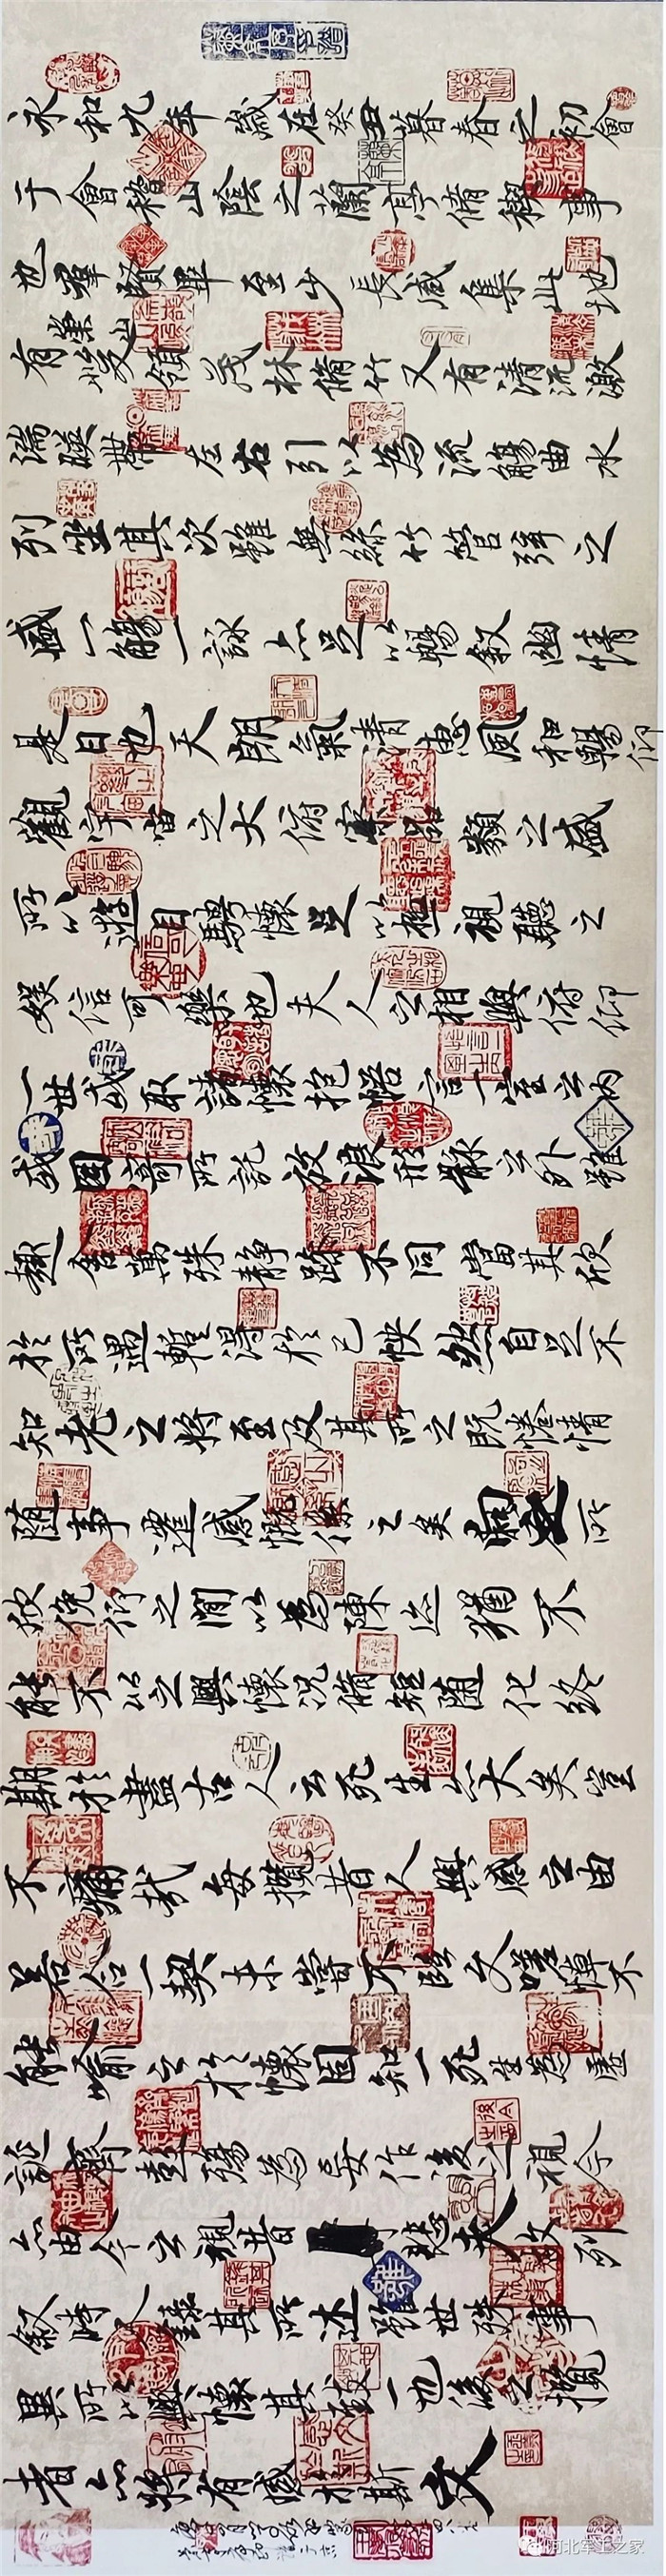 永和九年歲在癸丑暮春之初會
于會稽山陰之蘭亭脩禊事
也羣賢畢至少長咸集此地
有崇山峻領茂林脩竹又有清流激
湍暎帶左右引以為流觴曲水
列坐其次雖無絲竹管弦之
盛一觴一詠亦足以暢叙幽情
是日也天朗氣清惠風和暢仰
觀宇宙之大俯察品類之盛
所以遊目騁懷足以極視聽之
娛信可樂也夫人之相與俯仰
一世或取諸懷抱悟言一室之內
或因寄所託放浪形骸之外雖
趣舍萬殊靜躁不同當其欣
於所遇暫得於己怏然自足不
知老之將至及其所之既惓情
随事遷感慨係之矣向之所
欣俛仰之閒以為陳迹猶不
能不以之興懷況脩短随化終
期於盡古人云死生亦大矣豈
不痛哉每攬昔人興感之由
若合一契未嘗不臨文嗟悼不
能喻之於懷固知一死生為虛
誕齊彭殤為妄作後之視今
亦由今之視昔悲夫故列
叙時人錄其所述雖世殊事
異所以興懷其致一也後之攬
者亦將有感於斯文
河北军工之家